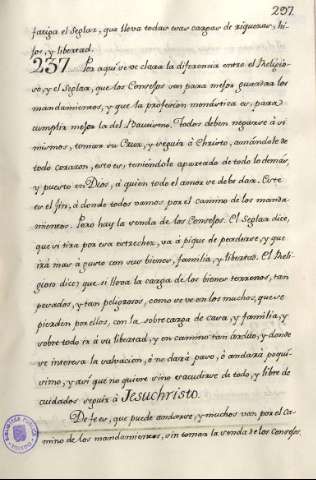 297.
fatiga el Seglar, que lleva todas esas cargas de riquezas, hi-
jos, y libertad.
237 Por aquí se ve clara la diferencia entre el Religio-
so, y el Seglar, que los Consejos van para mejor guardar los
mandamientos, y que la profesion monástica es, para
cumplir mejor la del Bautismo. Todos deben negarse à sí
mismos, tomar su Cruz, y seguir à Christo, amándole de
todo corazon, esto es, teniéndole apartado de todo lo demás,
y puesto en Dios, á quien todo el amor se debe dar. Este
es el fin, á donde todos vamos por el camino de los manda-
mientos. Pero hay la senda de los Consejos. El Seglar dice,
que si tira por esa estrechez, va á pique de perderse, y que
irá mas à gusto con sus bienes, familia, y libertad. El Reli-
gioso dice: que si lleva la carga de los bienes terrenos, tan
pesados, y tan peligrosos, como se ve en los muchos, que se
pierden por ellos, con la sobrecarga de casa, y familia, y
sobre todo va á su libertad, y en camino tan árduo, y donde
se interesa la salvacion, ó no dará paso, ó andará poqui-
simo, y así que no quiere sino escudirse de todo, y libre de
cuidados seguir à Jesuchristo.
De fe es, que puede andarse, y muchos van por el Ca-
mino de los mandamientos, sin tomar la senda de los Consejos.
BIBLIOTECA PUBLICA
TOLEDO